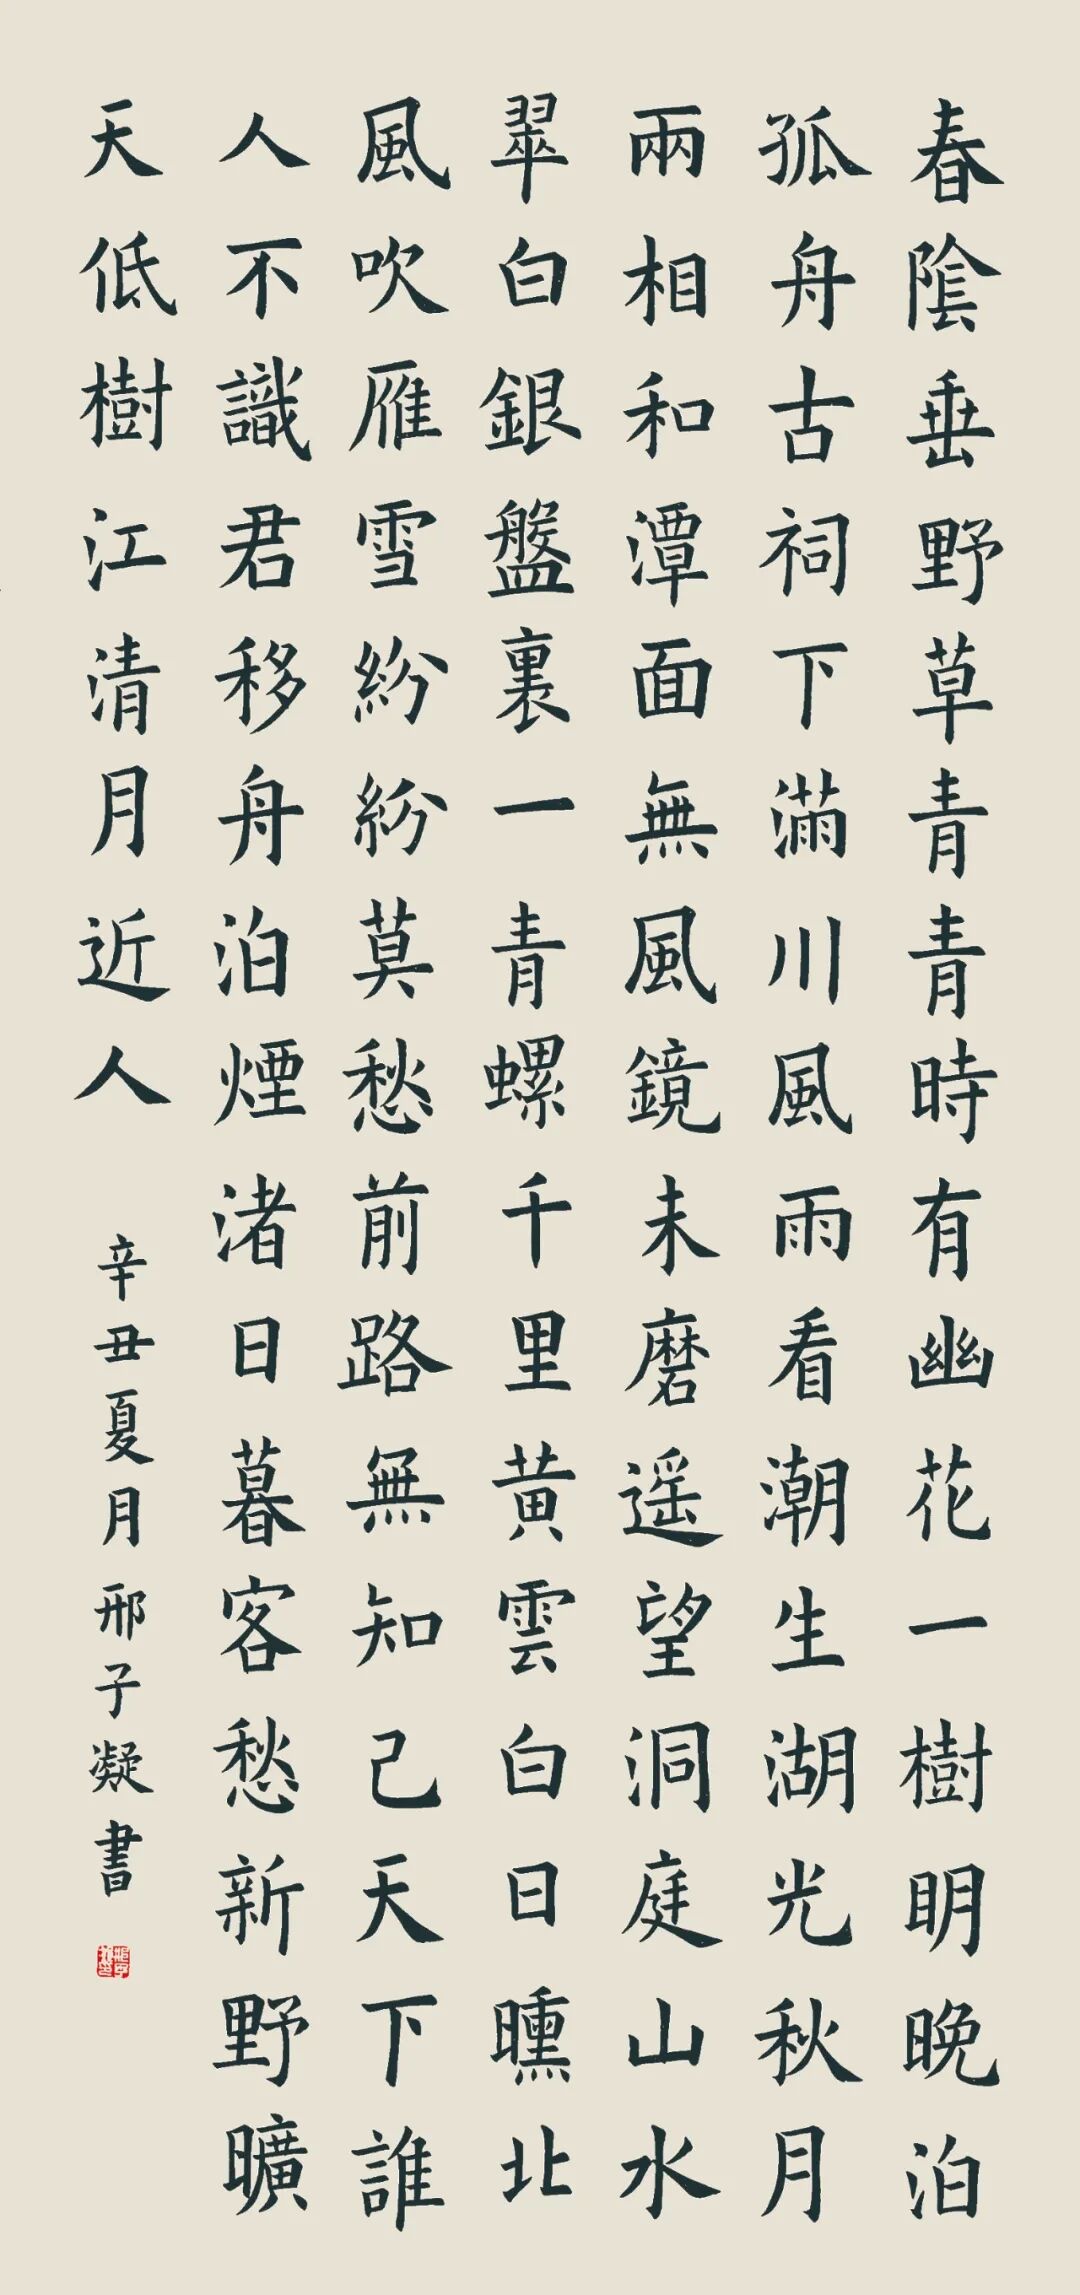 春陰垂野草青青時有幽花一樹明晚泊
孤舟古祠下滿川風雨看潮生湖光秋月
兩相和潭面無風鏡未磨遥望洞庭山水
翠白銀盤裏一青螺千里黄雲白日曛北
風吹雁雪紛紛莫愁前路無知己天下誰
人不識君移舟泊煙渚日暮客愁新野曠
天低樹江清月近人
辛丑夏月邢子凝書